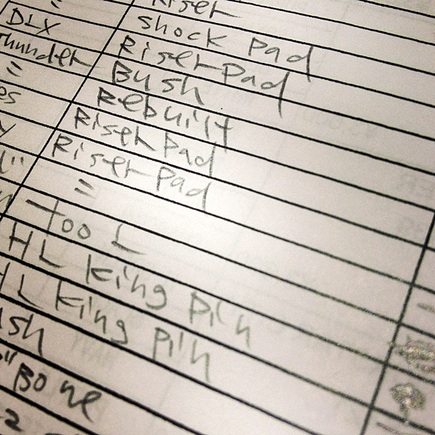 = Riser
DLX shock Pad
Thunder Riser Pad
= Bush
es Rebuilt
y Riser Pad
L" Riser Pad
=
Too L
HL king pin
HL king pin
sh
"Bone
-2